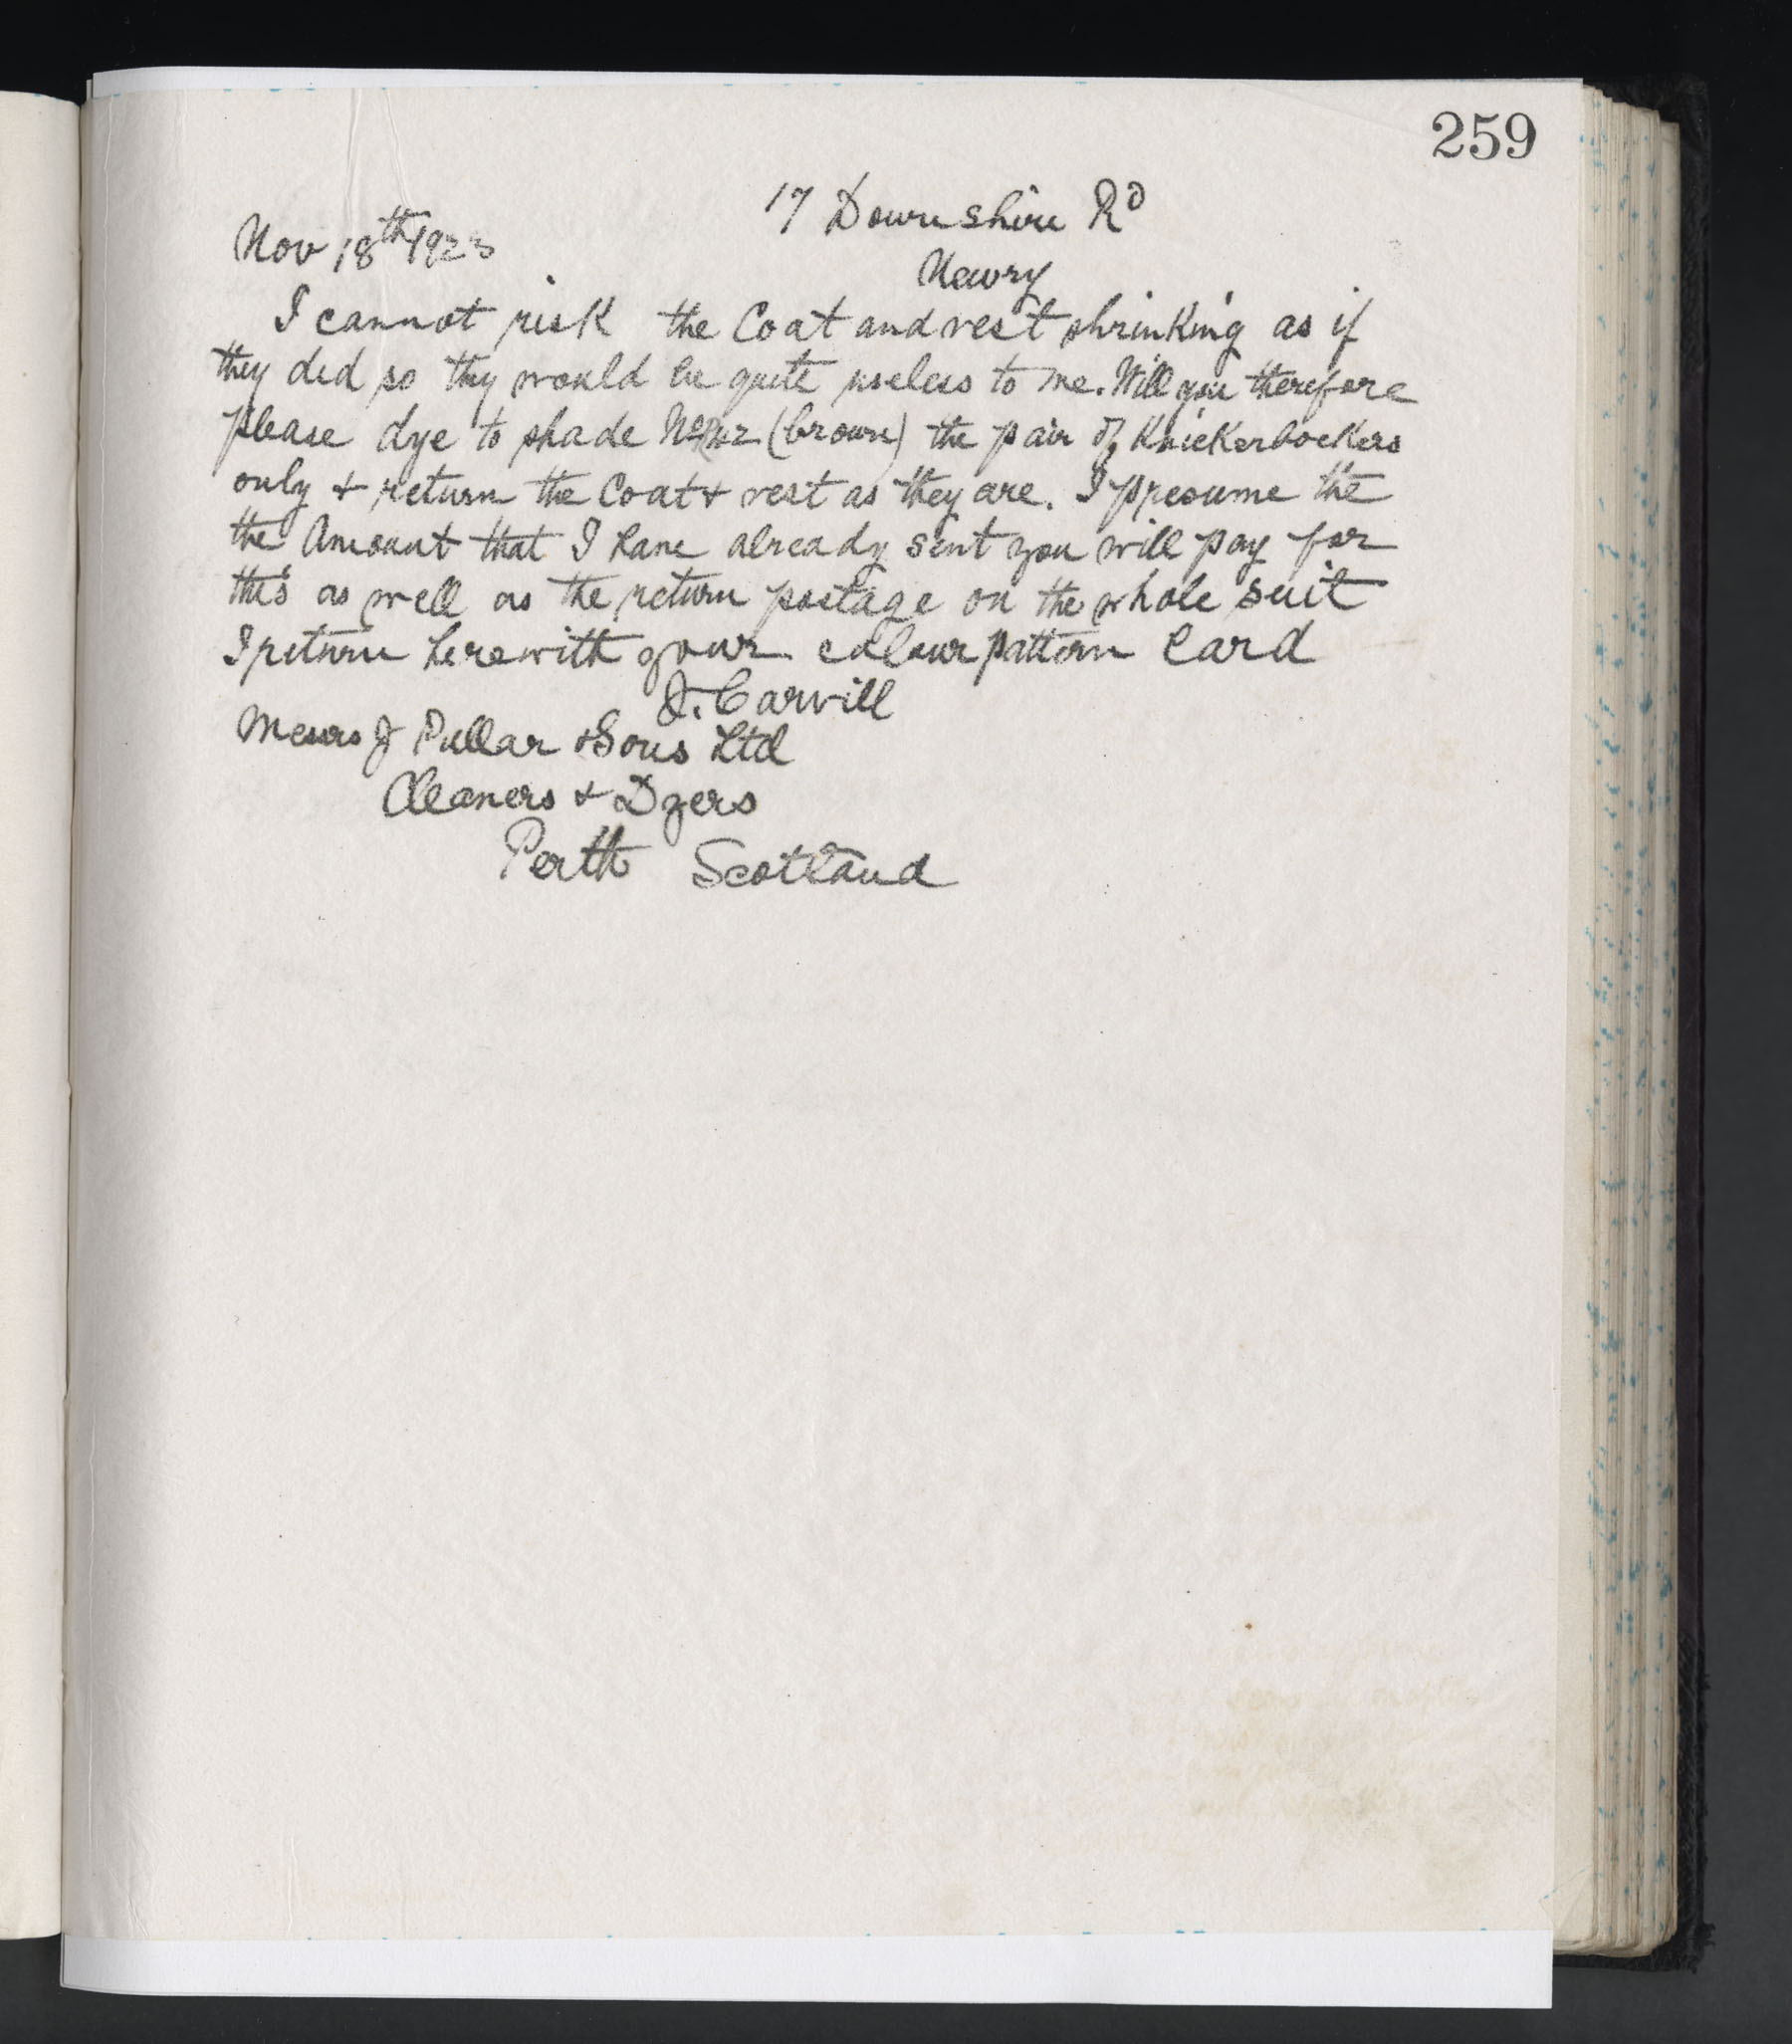 259
17 Downshire Rd
Nov 18th 1923
Newry
I cannot risk the Coat and vest shrinking as if
they did so they would be quite useless to me. Will you therefore
please dye to shade No (brown) the pair of Knickerbockers
only + return the Coat + vest as they are. I presume the
the Amount that I have already sent you will pay for
this as well as the return postage on the whole suit
I return herewith your colour pattern Card
J. Carvill
Messrs J Pullar & Sons Ltd
Cleaners + Dyers
Perth Scotland